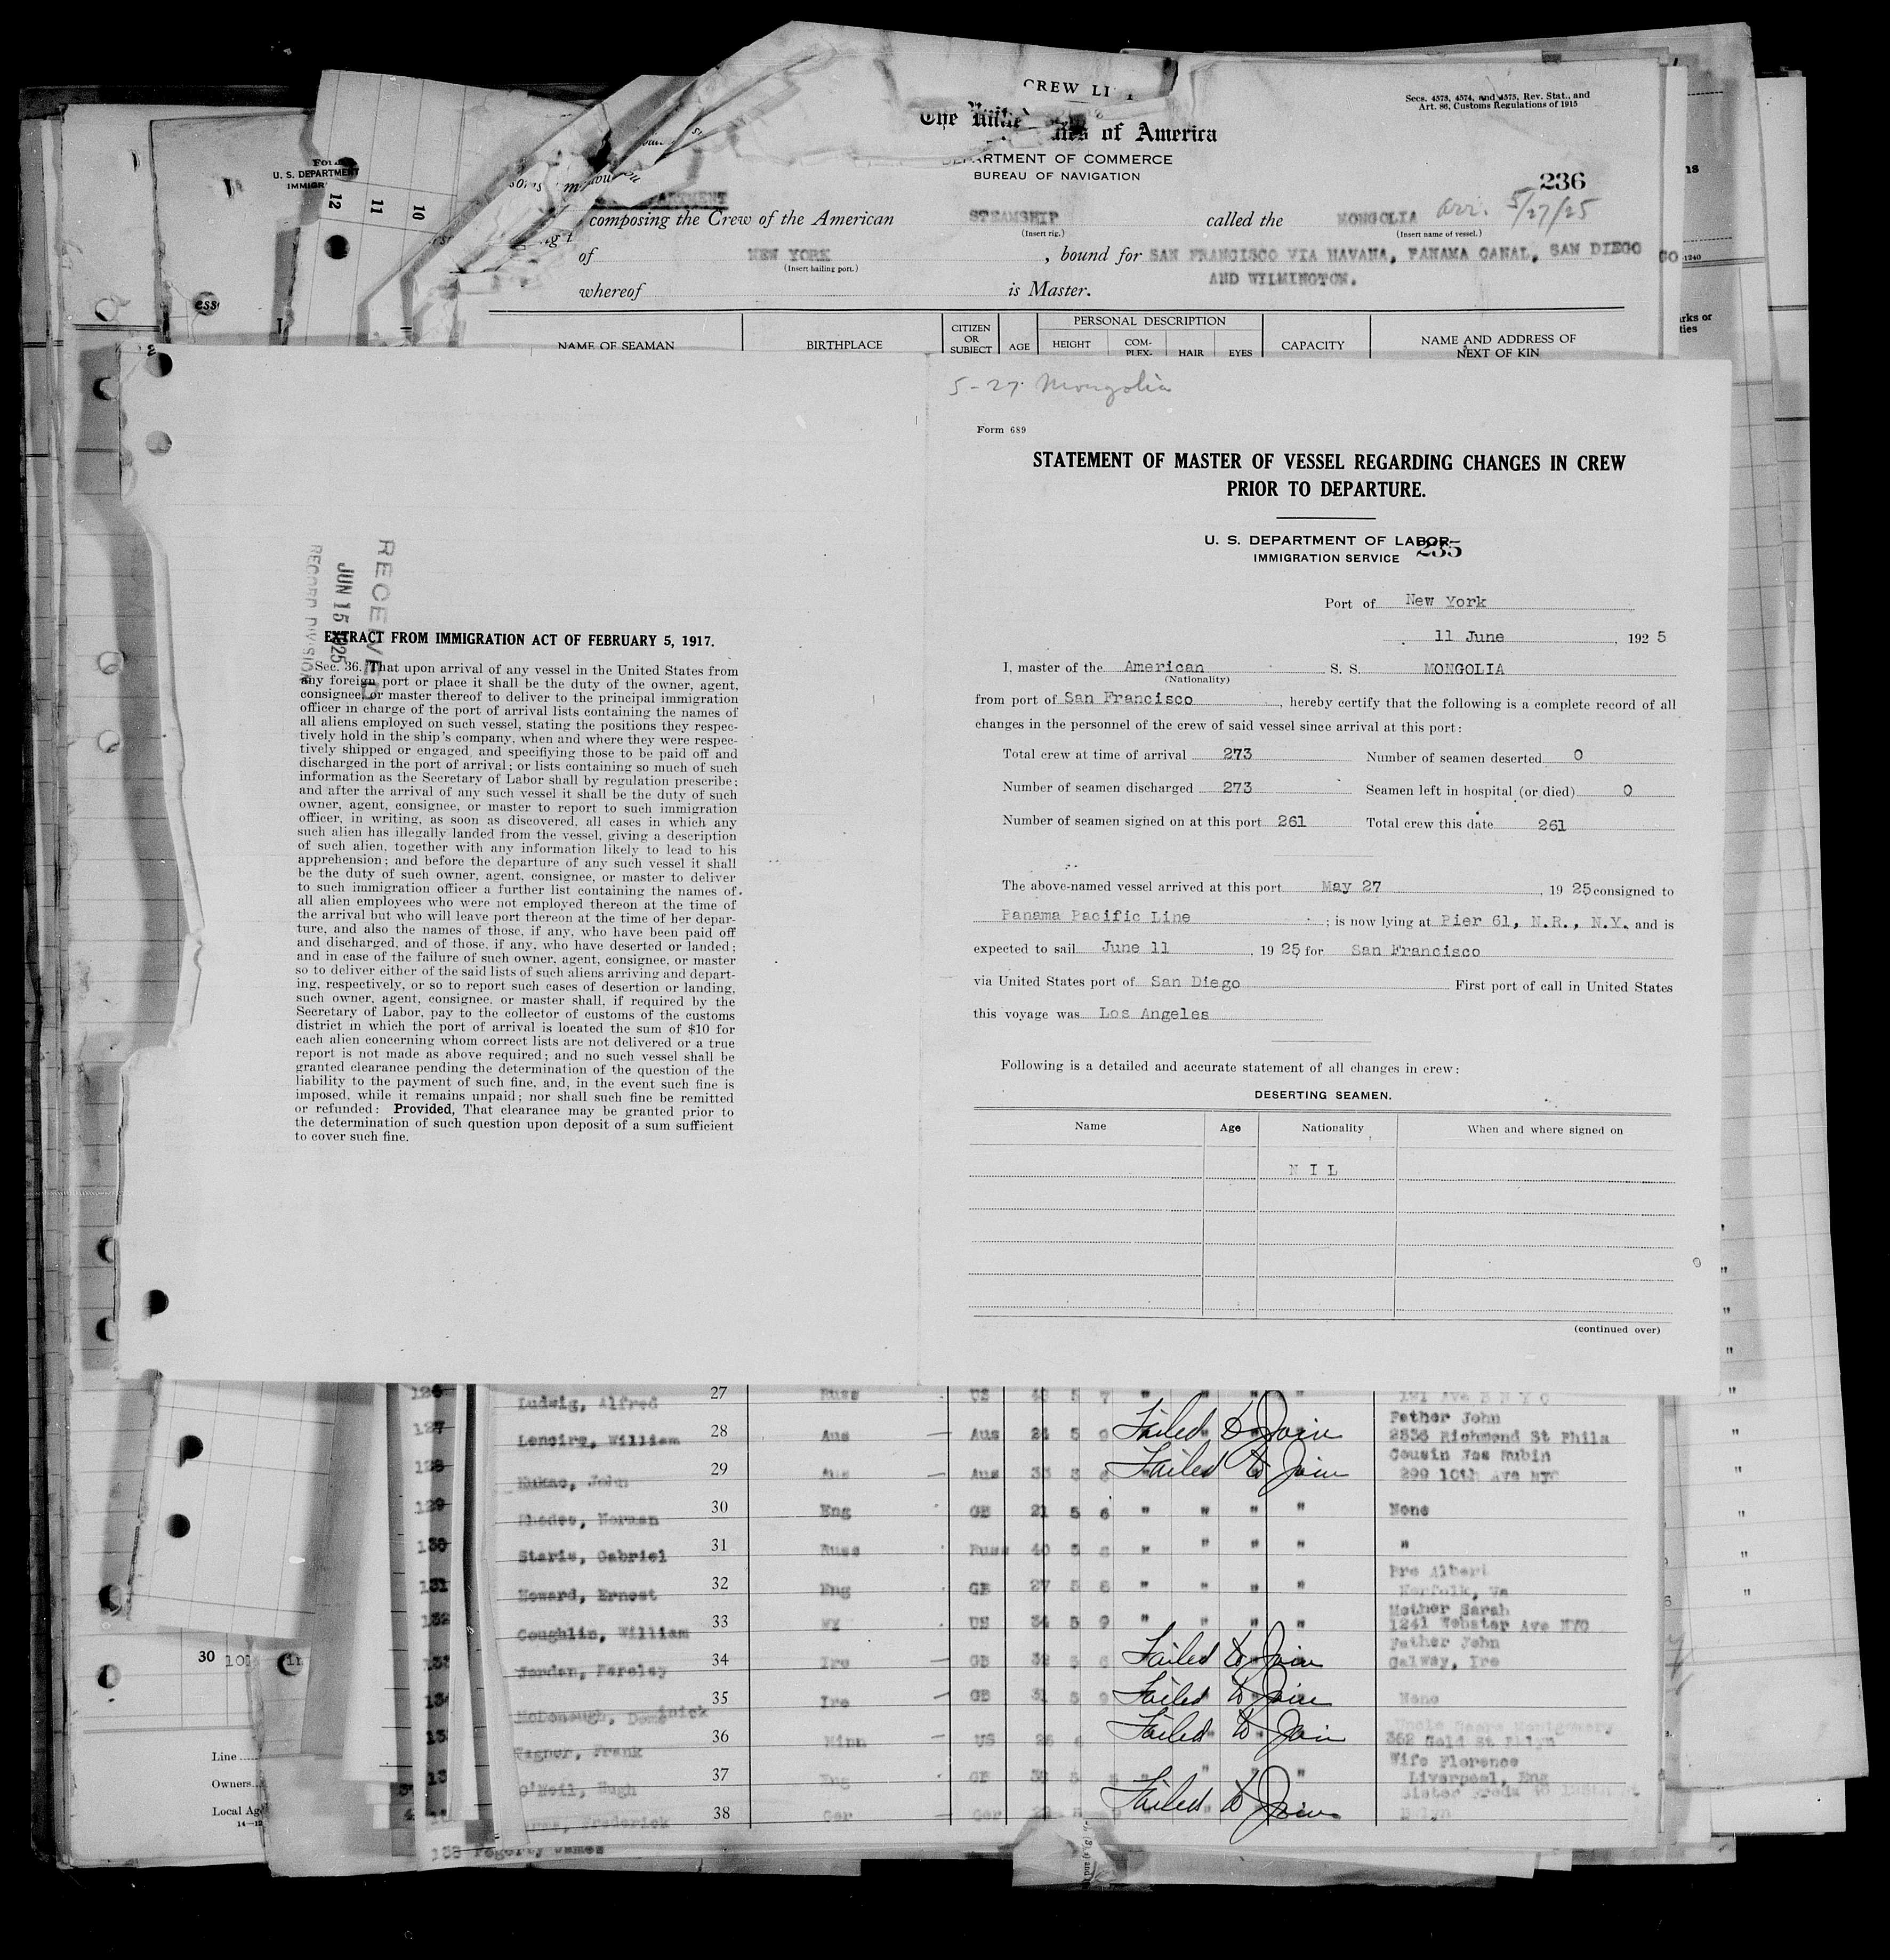 CREW LI
The Unite
tes of America
DEPARTMENT OF COMMERCE
BUREAU OF NAVIGATION
Secs. 4573, 4574, and 4575, Rev. Stat., and
Art. 86, Customs Regulations of 1915
236
composing the Crew of the American STEAMSHIP called the MONGOLIA arr. 5/27/25
(Insert rig.) (Insert name of vessel.)
of NEW YORK , bound for SAN FRANCISCO VIA HAVANA, PANAMA CANAL, SAN DIEGO
(Insert hailing port.)
AND WILMINGTON.
whereof is Master.
NAME OF SEAMAN BIRTHPLACE CITIZEN OR SUBJECT AGE PERSONAL DESCRIPTION HEIGHT COM- PLEX- HAIR EYES CAPACITY NAME AND ADDRESS OF NEXT OF KIN
U. S. DEPARTMENT
IMMIGR
12
11
10
RECEIVED
JUN 15 1925
RECORD DIVISION
EXTRACT FROM IMMIGRATION ACT OF FEBRUARY 5, 1917.
Sec. 36. That upon arrival of any vessel in the United States from
any foreign port or place it shall be the duty of the owner, agent,
consignee, or master thereof to deliver to the principal immigration
officer in charge of the port of arrival lists containing the names of
all aliens employed on such vessel, stating the positions they respec-
tively hold in the ship's company, when and where they were respec-
tively shipped or engaged, and specifiying those to be paid off and
discharged in the port of arrival; or lists containing so much of such
information as the Secretary of Labor shall by regulation prescribe;
and after the arrival of any such vessel it shall be the duty of such
owner, agent, consignee, or master to report to such immigration
officer, in writing, as soon as discovered, all cases in which any
such alien has illegally landed from the vessel, giving a description
of such alien, together with any information likely to lead to his
apprehension; and before the departure of any such vessel it shall
be the duty of such owner, agent, consignee, or master to deliver
to such immigration officer a further list containing the names of
all alien employees who were not employed thereon at the time of
the arrival but who will leave port thereon at the time of her depar-
ture, and also the names of those, if any, who have been paid off
and discharged, and of those, if any, who have deserted or landed;
and in case of the failure of such owner, agent, consignee, or master
so to deliver either of the said lists of such aliens arriving and depart-
ing, respectively, or so to report such cases of desertion or landing,
such owner, agent, consignee, or master shall, if required by the
Secretary of Labor, pay to the collector of customs of the customs
district in which the port of arrival is located the sum of $10 for
each alien concerning whom correct lists are not delivered or a true
report is not made as above required; and no such vessel shall be
granted clearance pending the determination of the question of the
liability to the payment of such fine, and, in the event such fine is
imposed, while it remains unpaid; nor shall such fine be remitted
or refunded: Provided, That clearance may be granted prior to
the determination of such question upon deposit of a sum sufficient
to cover such fine.
5-27 Mongolia
Form 689
STATEMENT OF MASTER OF VESSEL REGARDING CHANGES IN CREW
PRIOR TO DEPARTURE.
U. S. DEPARTMENT OF LABOR
IMMIGRATION SERVICE
235
Port of New York
11 June , 1925
I, master of the American S. S. MONGOLIA
(Nationality)
from port of San Francisco , hereby certify that the following is a complete record of all
changes in the personnel of the crew of said vessel since arrival at this port:
Total crew at time of arrival 273 Number of seamen deserted 0
Number of seamen discharged 273 Seamen left in hospital (or died) 0
Number of seamen signed on at this port 261 Total crew this date 261
The above-named vessel arrived at this port May 27 , 1925 consigned to
Panama Pacific Line ; is now lying at Pier 61, N.R., N.Y. and is
expected to sail June 11 , 1925 for San Francisco
via United States port of San Diego First port of call in United States
this voyage was Los Angeles
Following is a detailed and accurate statement of all changes in crew:
DESERTING SEAMEN.
Name Age Nationality When and where signed on
N I L
(continued over)
Ludwig, Alfred 27 Russ US 5 7 " " " " 121 Ave B N Y C
127 28 Aus Aus 24 5 9 Failed to Join Father John
Lencirs, William 2836 Richmond St Phila
29 Aus Aus 33 Failed to Join Cousin Jos Rubin
John 299 10th Ave NYC
129 Rhodes, Norman 30 Eng GB 21 5 6 " " " " None
Staris, Gabriel 31 Russ Russ 40 5 " " " " "
131 Howard, Ernest 32 Eng GB 27 5 8 " " " " Bro Albert
Norfolk, Va
132 Coughlin, William 33 NY US 34 5 9 " " " " Mother Sarah
1241 Webster Ave NYC
34 Ire GB 32 5 Failed to Join Father John
Galway, Ire
McDonough, Dominick 35 Ire GB 31 5 9 Failed to Join None
Wagner, Frank 36 Minn US Failed to Join
362 Gold St Bklyn
O'Neil, Hugh 37 Eng GB Wife Florence
Liverpool, Eng
Frederick 38 Ger Ger Failed to Join
Bklyn
138 Fogerty James
30
Line
Owners
Local Ag